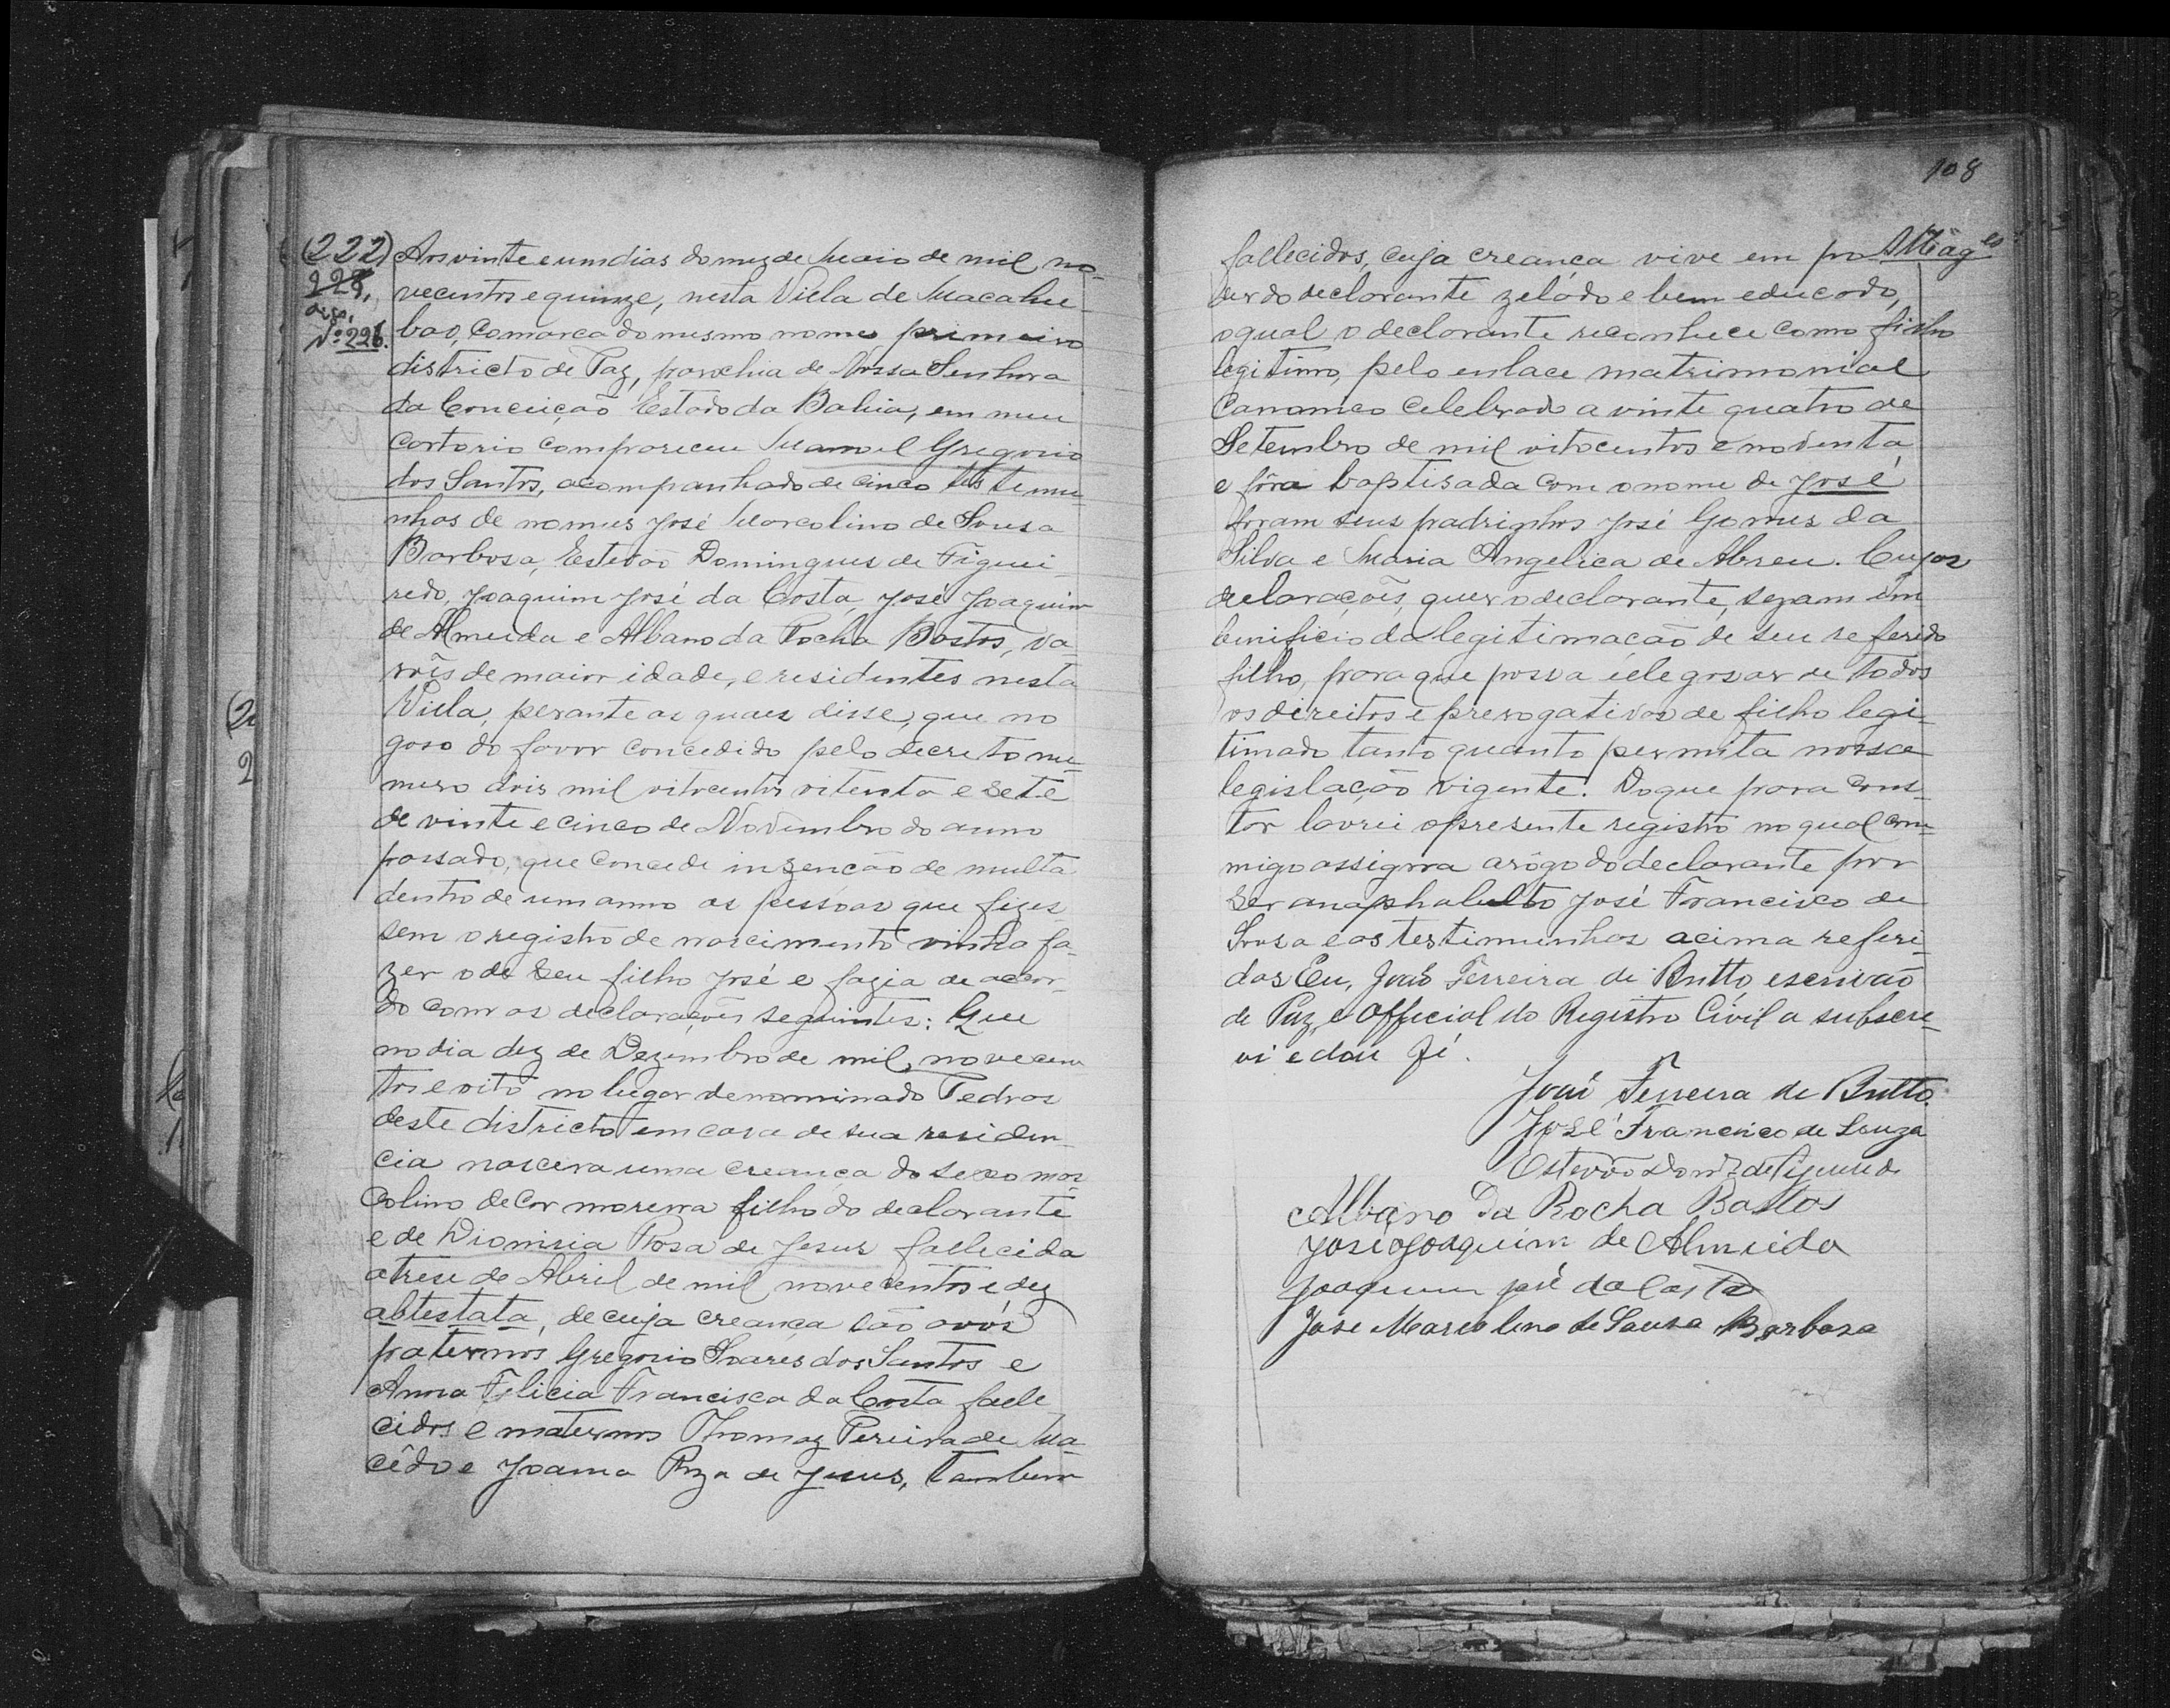 108
(222)
228,
digo,
Nº 226.
Aos vinte e um dias do mez de Maio de mil no-
vecentos e quinze, nesta Villa de Macahu-
bas, comarca do mesmo nome primeiro
districto de Paz, parochia de Nossa Senhora
da Conceição Estado da Bahia, em meu
Cartorio compareceu Manoel Gregorio
dos Santos, acompanhado de cinco testemu-
nhas de nomes José Marcolino de Sousa
Barbosa, Estevão Domingues de Figuei-
redo, Joaquim José da Costa, José Joaquim
de Almeida e Albano da Rocha Bastos, va-
rões de maior idade, e residentes nesta
Villa, perante as quaes disse, que no
goso do favor concedido pelo decreto nu-
mero dois mil oitocentos oitenta e sete
de vinte e cinco de Novembro do anno
passado, que concede inzenção de multa
dentro de um anno as pessoas que fizes-
sem o registro de nascimento vinha fa-
zer o de seu filho José e fazia de accor-
do com as declarações seguintes: Que
no dia dez de Dezembro de mil novecen
tos e oito no lugar denominado Pedras
deste districto em casa de sua residen-
cia nascera uma creança do sexo mas
colino de cor morena filho do declarante
e de Dionisia Rosa de Jesus fallecida
a trese de Abril de mil novecentos e dez
abtestata, de cuja creança são avós
paternos Gregorio Soares dos Santos e
Anna Felicia Francisca da Costa falle
cidos e maternos Thomaz Pereira de Ma-
cêdo e Joanna Roza de Jesus, tambem
fallecidos, cuja creança vive em po
der do declarante zeládo e bem educado,
o qual o declarante reconhece como filho
legitimo, pelo enlace matrimonial
Canonico celebrado a vinte quatro de
Setembro de mil oitocentos e noventa
e fôra baptisada com o nome de José
foram seus padrinhos José Gomes da
Silva e Maria Angelica de Abreu. Cujas
declarações, quer o declarante, sejam em
benificio da legitimação de seu referido
filho, para que possa elle gosar de todos
os direitos e prerogativas de filho legi-
timado tanto quanto permita nossa
legislação vigente. Do que para cons-
tar lavrei o presente registro no qual com-
migo assigna arôgo do declarante por
ser anaphabelto José Francisco de
Sousa e as testimunhas acima referi-
das Eu, João Ferreira de Britto, escrivão
de Paz, e Official do Registro Civil a subscre-
vi e dou fé.
João Ferreira de Britto.
José Francisco de Souza
Estevão Domz de Figueiredo
Albano Da Rocha Bastos
José Joaquim de Almeida
Joaquim José da Costa
José Marcolino de Sousa Barbosa